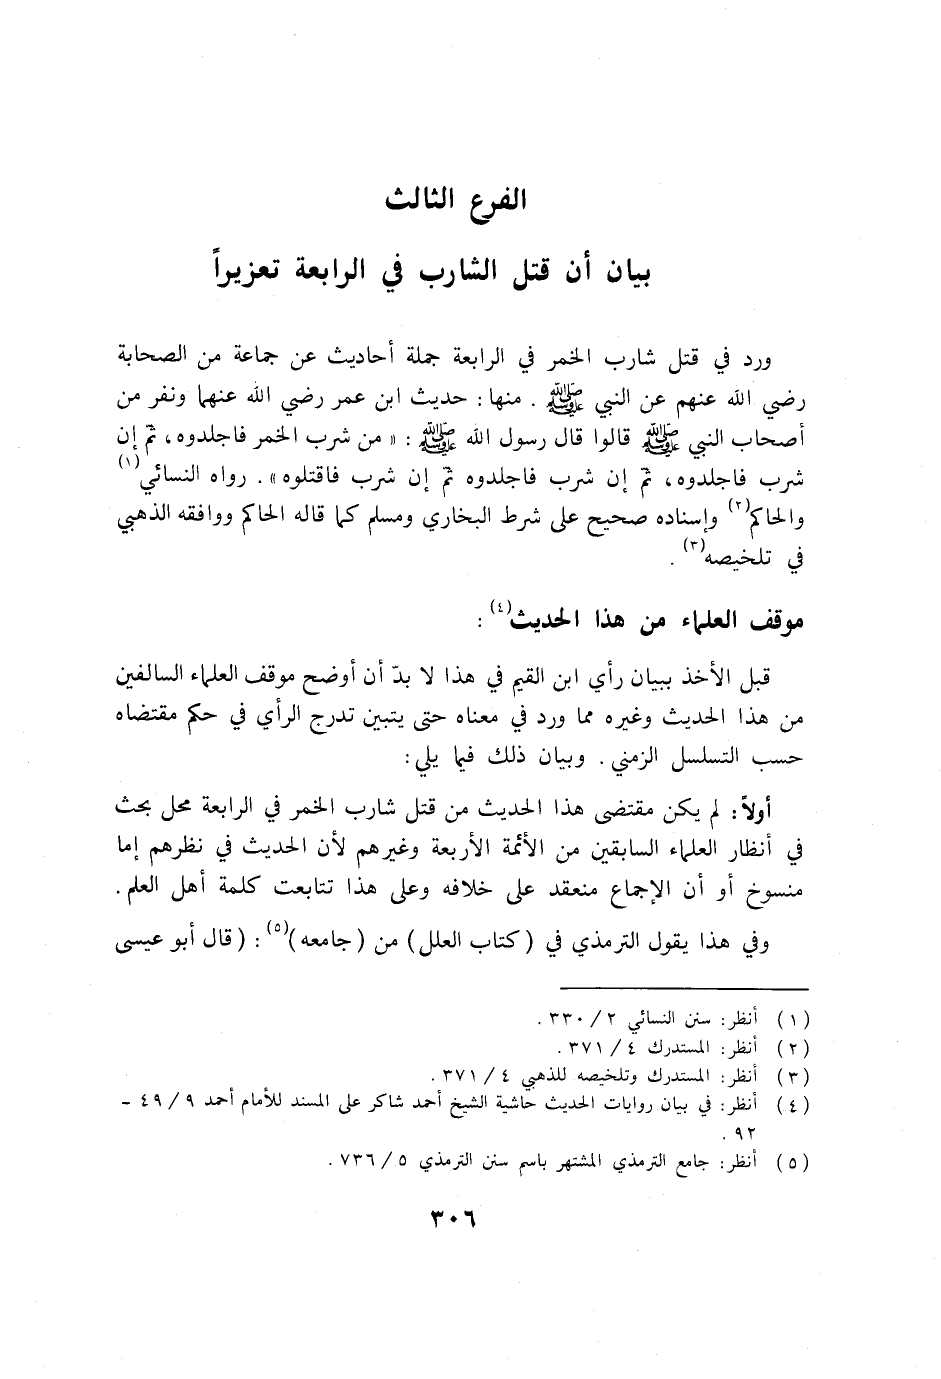 الفرع الثالث
بيان أن قتل الشارب في الرابعة تعزيراً
ورد في قتل شارب الخمر في الرابعة جملة أحاديث عن جماعة من الصحابة
رضي الله عنهم عن النبي ﷺ . منها: حديث ابن عمر رضي الله عنهما ونفر من
أصحاب النبي ﷺ قالوا قال رسول الله ﷺ : « من شرب الخمر فاجلدوه، ثمّ إن
شرب فاجلدوه، ثمّ إن شرب فاجلدوه ثمّ إن شرب فاقتلوه». رواه النسائي(١)
والحاكم(٢) وإسناده صحيح على شرط البخاري ومسلم كما قاله الحاكم ووافقه الذهبي
في تلخيصه(٣) .
موقف العلماء من هذا الحديث(٤) :
قبل الأخذ ببيان رأي ابن القيم في هذا لا بدّ أن أوضح موقف العلماء السالفين
من هذا الحديث وغيره مما ورد في معناه حتى يتبين تدرج الرأي في حكم مقتضاه
حسب التسلسل الزمني. وبيان ذلك فيما يلي:
أولاً: لم يكن مقتضى هذا الحديث من قتل شارب الخمر في الرابعة محل بحث
في أنظار العلماء السابقين من الأئمة الأربعة وغيرهم لأن الحديث في نظرهم إما
منسوخ أو أن الإجماع منعقد على خلافه وعلى هذا تتابعت كلمة أهل العلم.
وفي هذا يقول الترمذي في (كتاب العلل) من (جامعه)(٥) : (قال أبو عيسى
(١) أنظر: سنن النسائي ٢/ ٣٣٠ .
(٢) أنظر: المستدرك ٤/ ٣٧١ .
(٣) أنظر: المستدرك وتلخيصه للذهبي ٤/ ٣٧١ .
(٤) أنظر: في بيان روايات الحديث حاشية الشيخ أحمد شاكر على المسند للأمام أحمد ٩/ ٤٩ –
٩٢ .
(٥) أنظر: جامع الترمذي المشتهر باسم سنن الترمذي ٥/ ٧٣٦ .
٣٠٦